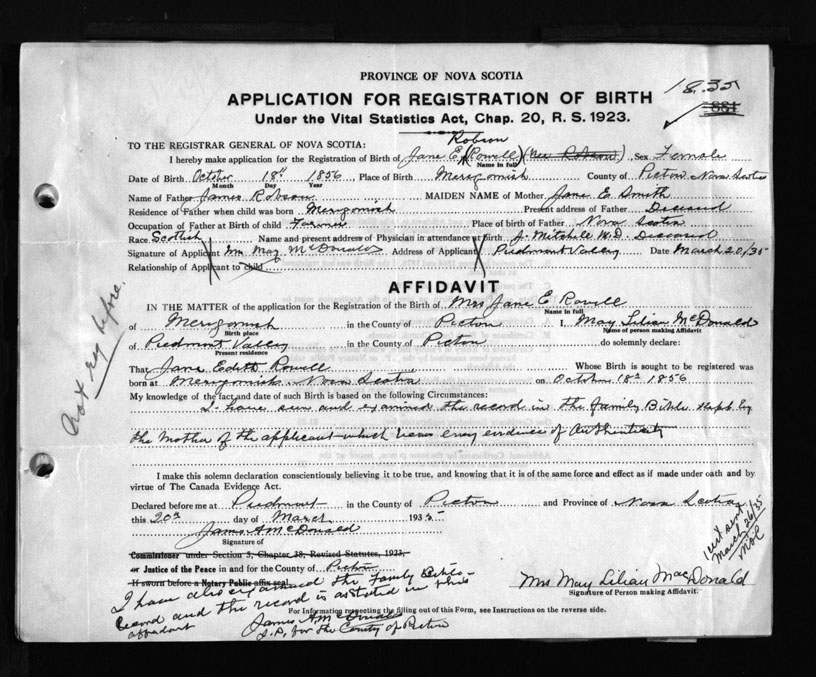 PROVINCE OF NOVA SCOTIA
1835
881
APPLICATION FOR REGISTRATION OF BIRTH
Under the Vital Statistics Act, Chap. 20, R. S. 1923.
TO THE REGISTRAR GENERAL OF NOVA SCOTIA:
Robson
I hereby make application for the Registration of Birth of Jane E. (Rowell) (Nee Robson) Sex Female
Name in full
Date of Birth October 18th 1856 Place of Birth Merigomish County of Pictou Nova Scotia
Month Day Year
Name of Father James Robson MAIDEN NAME of Mother Jane E Smith
Residence of Father when child was born Merigomish Present address of Father Deceased
Occupation of Father at Birth of child Farmer Place of birth of Father Nova Scotia
Race Scotch Name and present address of Physician in attendance at Birth J. Mitchell M.D. Deceased
Signature of Applicant May McDonald Address of Applicant Piedmont Valley Date March 20/35
Relationship of Applicant to child
AFFIDAVIT
Not reg before
IN THE MATTER of the application for the Registration of the Birth of Mrs Jane E Rowell
Name in full
of Merigomish in the County of Pictou I, May Lilian McDonald
Birth place Name of person making Affidavit
of Piedmont Valley in the County of Pictou do solemnly declare:
Present residence
That Jane Edith Rowell Whose Birth is sought to be registered was
born at Merigomish Nova Scotia on October 18th 1856
My knowledge of the fact and date of such Birth is based on the following Circumstances:
I have seen and examined the record in the family Bible kept by
the mother of the applicant which bears every evidence of authenticity
I make this solemn declaration conscientiously believing it to be true, and knowing that it is of the same force and effect as if made under oath and by
virtue of The Canada Evidence Act.
Declared before me at Piedmont in the County of Pictou and Province of Nova Scotia
this 20th day of March 1935
James A McDonald
Signature of
Commissioner under Section 5, Chapter 38, Revised Statutes, 1923,
or Justice of the Peace in and for the County of Pictou
If sworn before a Notary Public affix seal
1 cert sent
March 26/35
Mrs May Lilian MacDonald
Signature of Person making Affidavit.
I have also examined the Family Bible
record and the record is as stated in this
affidavit
For Information respecting the filling out of this Form, see Instructions on the reverse side.
James A McDonald
J.P. for the County of Pictou